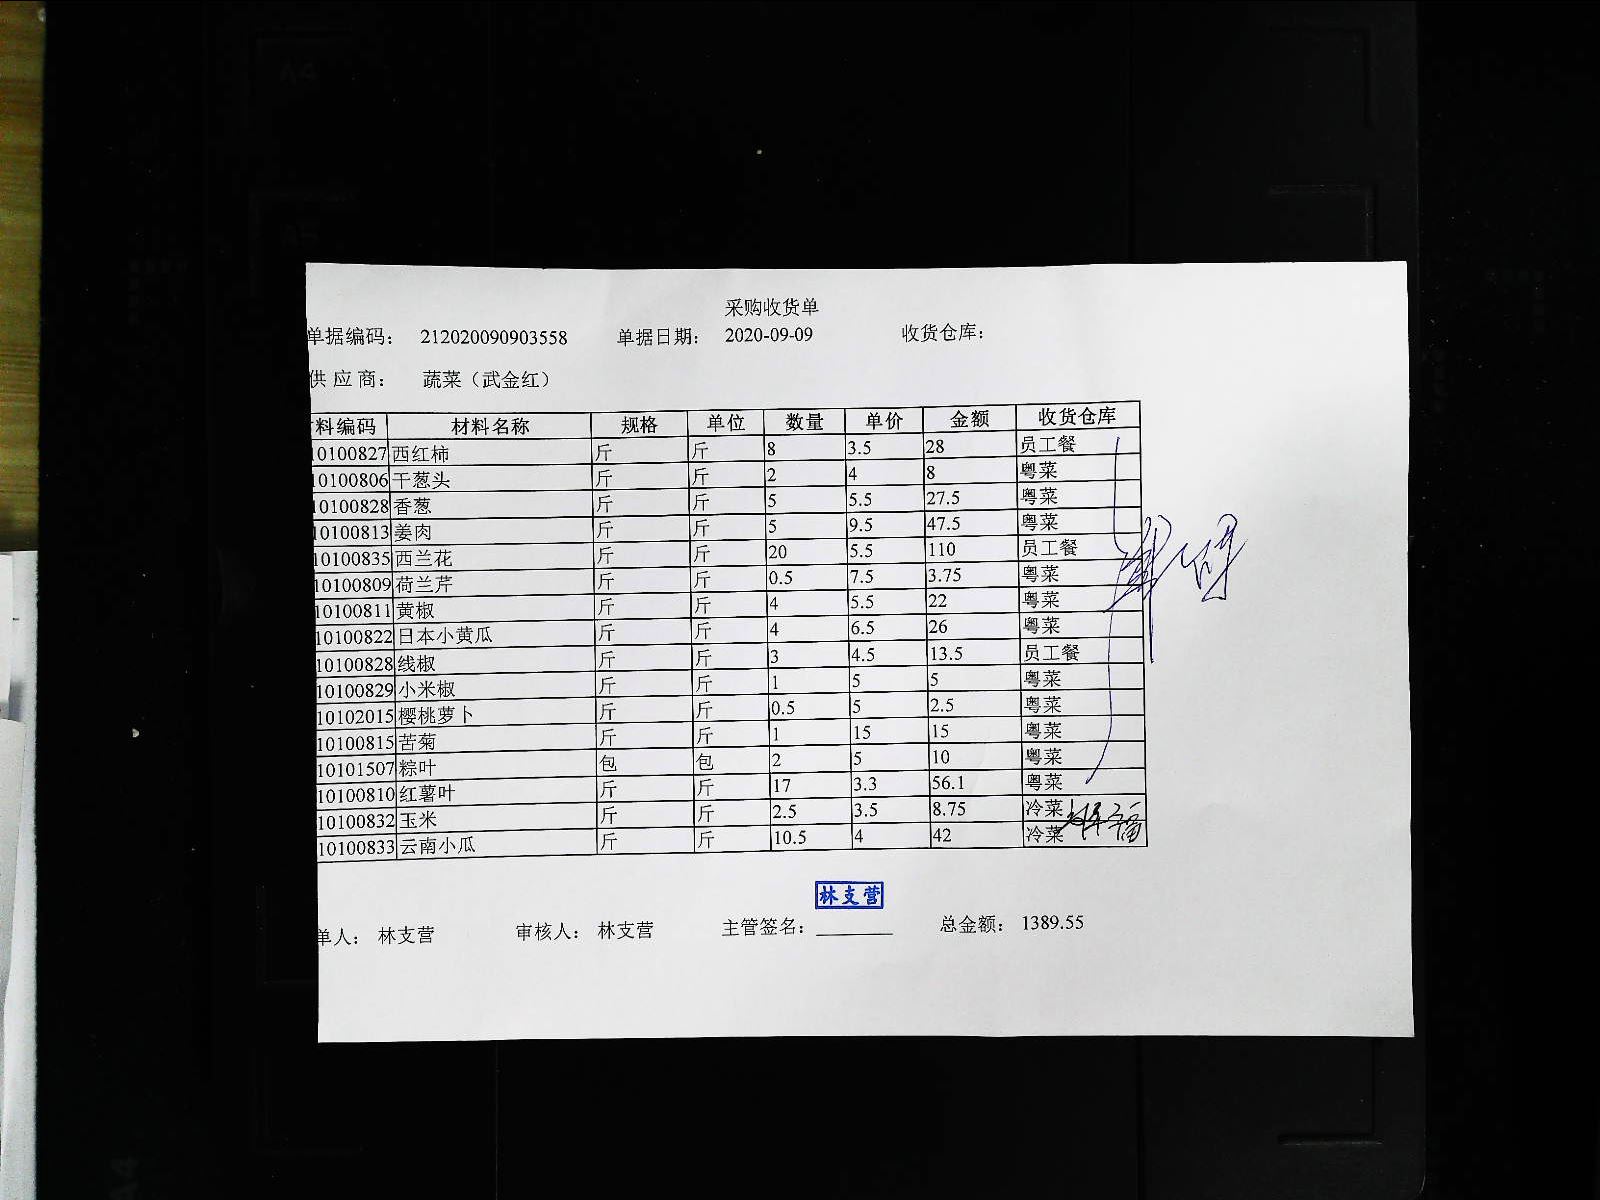 采购收货单
单据编码： 212020090903558 单据日期： 2020-09-09 收货仓库：
供 应 商： 蔬菜（武金红）
料编码 材料名称 规格 单位 数量 单价 金额 收货仓库
10100827 西红柿 斤 斤 8 3.5 28 员工餐
10100806 干葱头 斤 斤 2 4 8 粤菜
10100828 香葱 斤 斤 5 5.5 27.5 粤菜
10100813 姜肉 斤 斤 5 9.5 47.5 粤菜
10100835 西兰花 斤 斤 20 5.5 110 员工餐
10100809 荷兰芹 斤 斤 0.5 7.5 3.75 粤菜
10100811 黄椒 斤 斤 4 5.5 22 粤菜
10100822 日本小黄瓜 斤 斤 4 6.5 26 粤菜
10100828 线椒 斤 斤 3 4.5 13.5 员工餐
10100829 小米椒 斤 斤 1 5 5 粤菜
10102015 樱桃萝卜 斤 斤 0.5 5 2.5 粤菜
10100815 苦菊 斤 斤 1 15 15 粤菜
10101507 粽叶 包 包 2 5 10 粤菜
10100810 红薯叶 斤 斤 17 3.3 56.1 粤菜
10100832 玉米 斤 斤 2.5 3.5 8.75 冷菜
10100833 云南小瓜 斤 斤 10.5 4 42 冷菜
林支营
单人： 林支营 审核人： 林支营 主管签名： 总金额： 1389.55